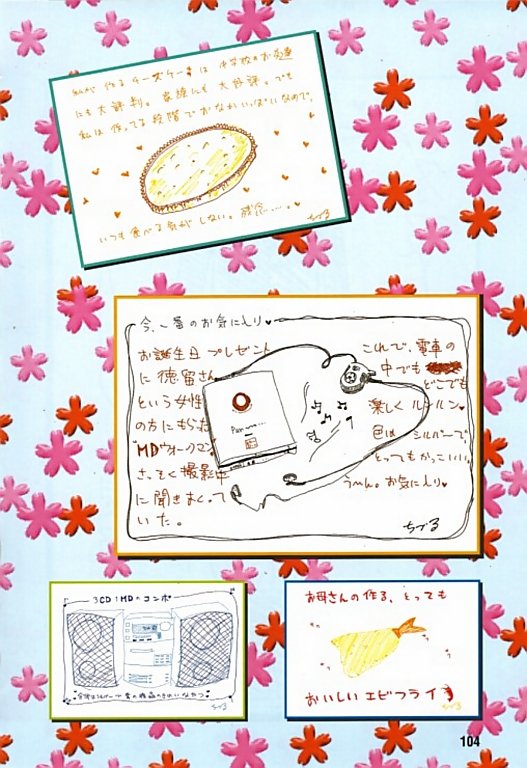 私が 作る チーズケーキ は 中学校のお友達
にも大評判。家族にも 大好評。でも
私は 作ってる段階でおなかいっぱいなので、
いつも食べる気がしない。残念……。♥
ちづる
今、一番のお気に入り♥
お誕生日プレゼント
に 徳留さん
という女性
の方にもらった
"MDウォークマン"
さっそく撮影中
に聞きまくって
いた。
Panasonic
これで、電車の
中でも
どこでも
楽しく ルンルン♥
色は シルバーで、
とってもかっこいい。
う〜ん。お気に入り♥
ちづる
3CD1MDのコンポ
ちづる
お母さんの作る、とっても
おいしい エビフライ
ちづる
104